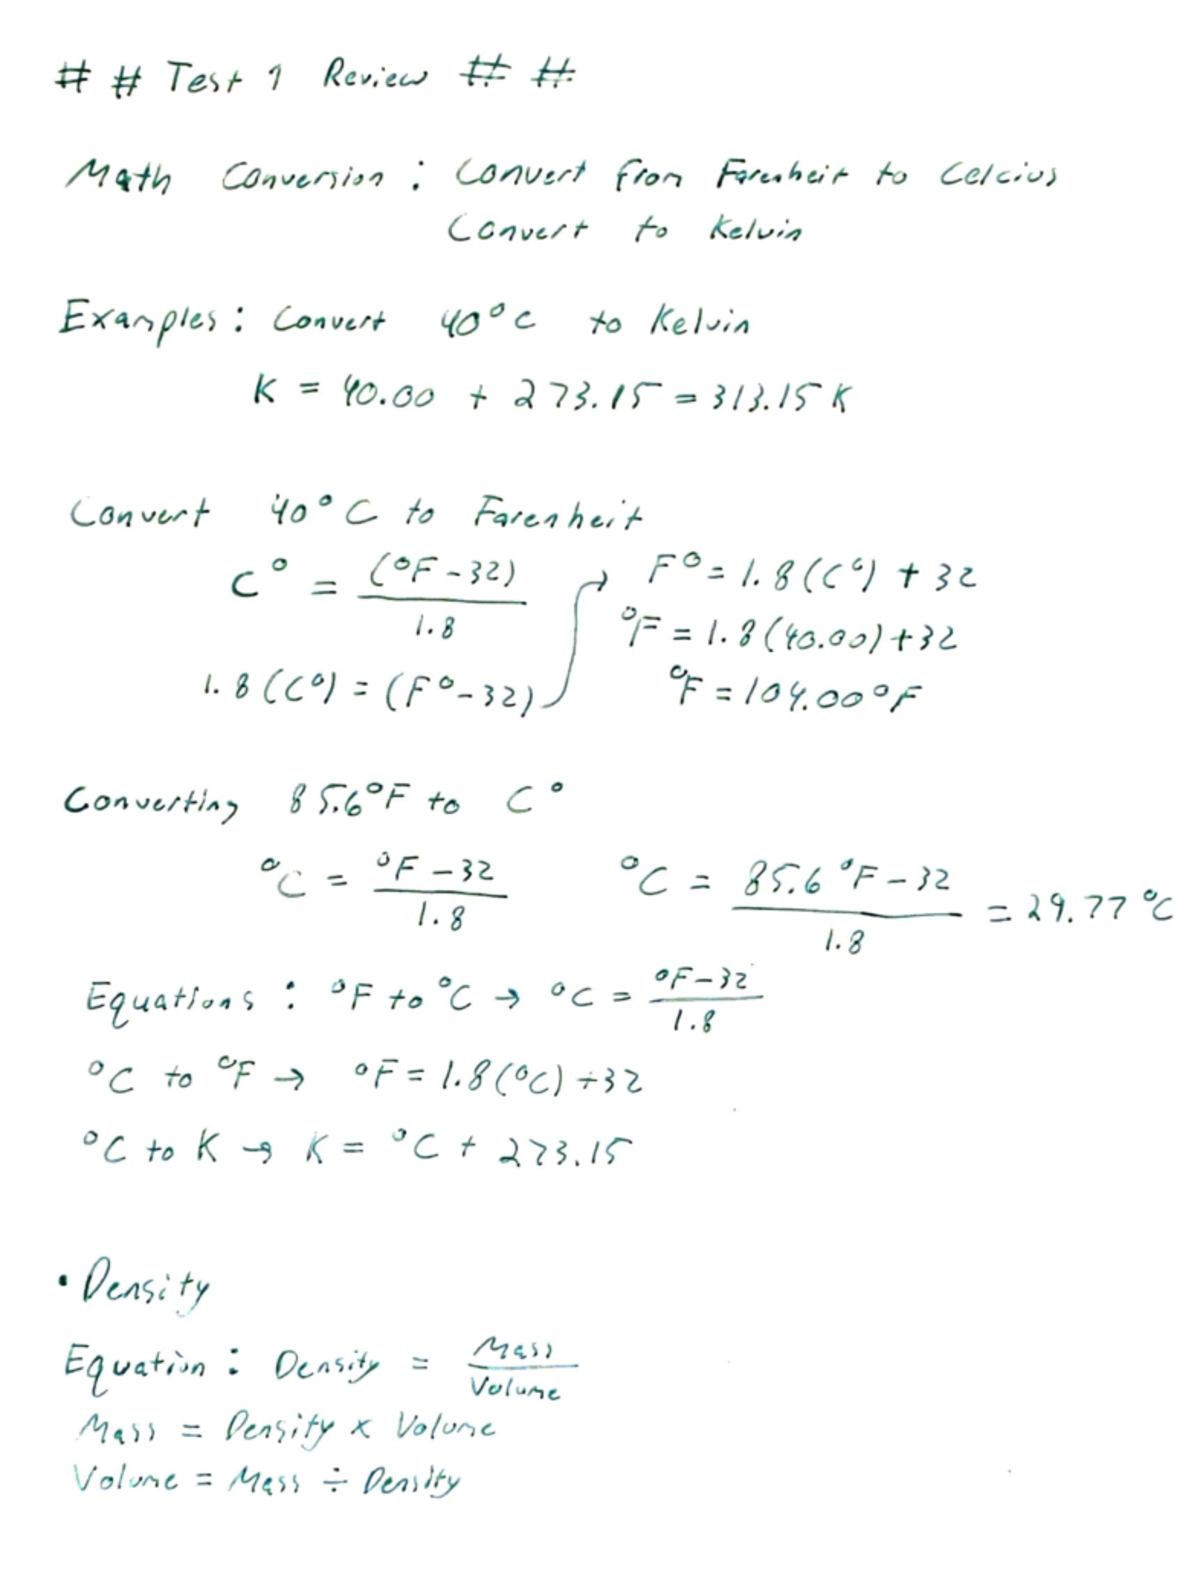 # # Test 1 Review # #
Math Conversion : Convert from Farenheit to Celcius
Convert to Kelvin
Examples : Convert 40°C to Kelvin
K = 40.00 + 273.15 = 313.15 K
Convert 40°C to Farenheit
C° = (°F - 32) / 1.8
1.8 (C°) = (F° - 32)
→ F° = 1.8 (C°) + 32
°F = 1.8 (40.00) + 32
°F = 104.00 °F
Converting 85.6°F to C°
°C = °F - 32 / 1.8
°C = 85.6 °F - 32 / 1.8 = 29.77 °C
Equations : °F to °C → °C = °F - 32 / 1.8
°C to °F → °F = 1.8 (°C) + 32
°C to K → K = °C + 273.15
• Density
Equation : Density = Mass / Volume
Mass = Density x Volume
Volume = Mass ÷ Density